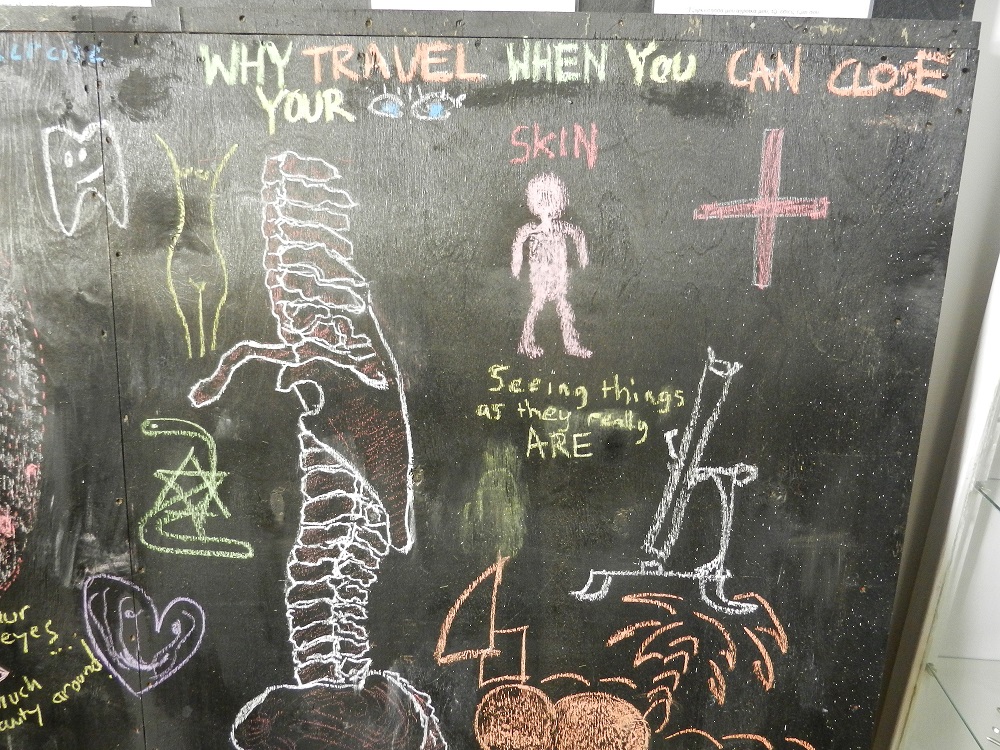 WHY TRAVEL WHEN YOU CAN CLOSE
YOUR
SKIN
Seeing things
as they really
ARE
eyes...
around!